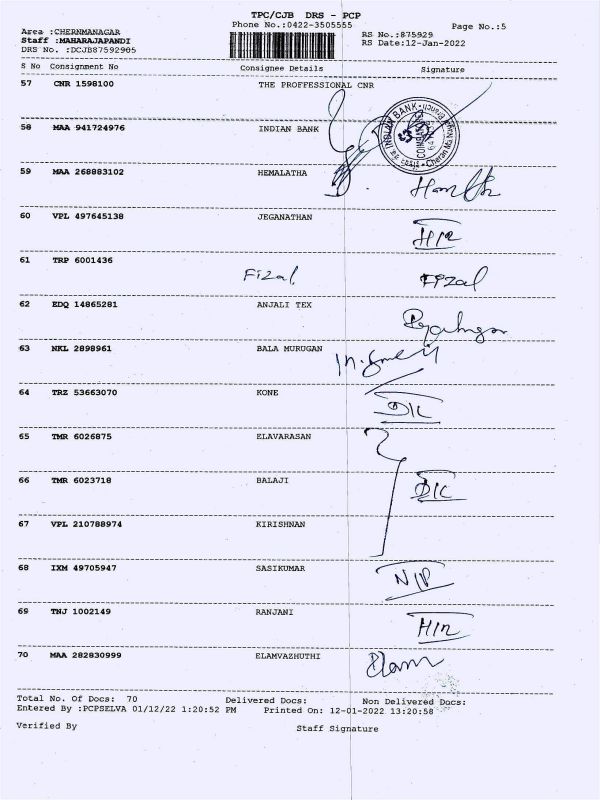 TPC/CJB DRS - PCP
Phone No.:0422-3505555
Page No.:5
Area :CHERNMANAGAR
Staff :MAHARAJAPANDI
DRS No. :DCJB87592905
RS No.:875929
RS Date:12-Jan-2022
S No Consignment No Consignee Details Signature
57 CNR 1598100 THE PROFFESSIONAL CNR
INDIAN BANK
58 MAA 941724976 INDIAN BANK
59 MAA 268883102 HEMALATHA
60 VPL 497645138 JEGANATHAN
61 TRP 6001436
Fizal Fizal
62 EDQ 14865281 ANJALI TEX
63 NKL 2898961 BALA MURUGAN
64 TRZ 53663070 KONE
65 TMR 6026875 ELAVARASAN
66 TMR 6023718 BALAJI
67 VPL 210788974 KIRISHNAN
68 IXM 49705947 SASIKUMAR
69 TNJ 1002149 RANJANI
70 MAA 282830999 ELAMVAZHUTHI
Elam
Total No. Of Docs: 70 Delivered Docs: Non Delivered Docs:
Entered By :PCPSELVA 01/12/22 1:20:52 PM Printed On: 12-01-2022 13:20:58
Verified By Staff Signature